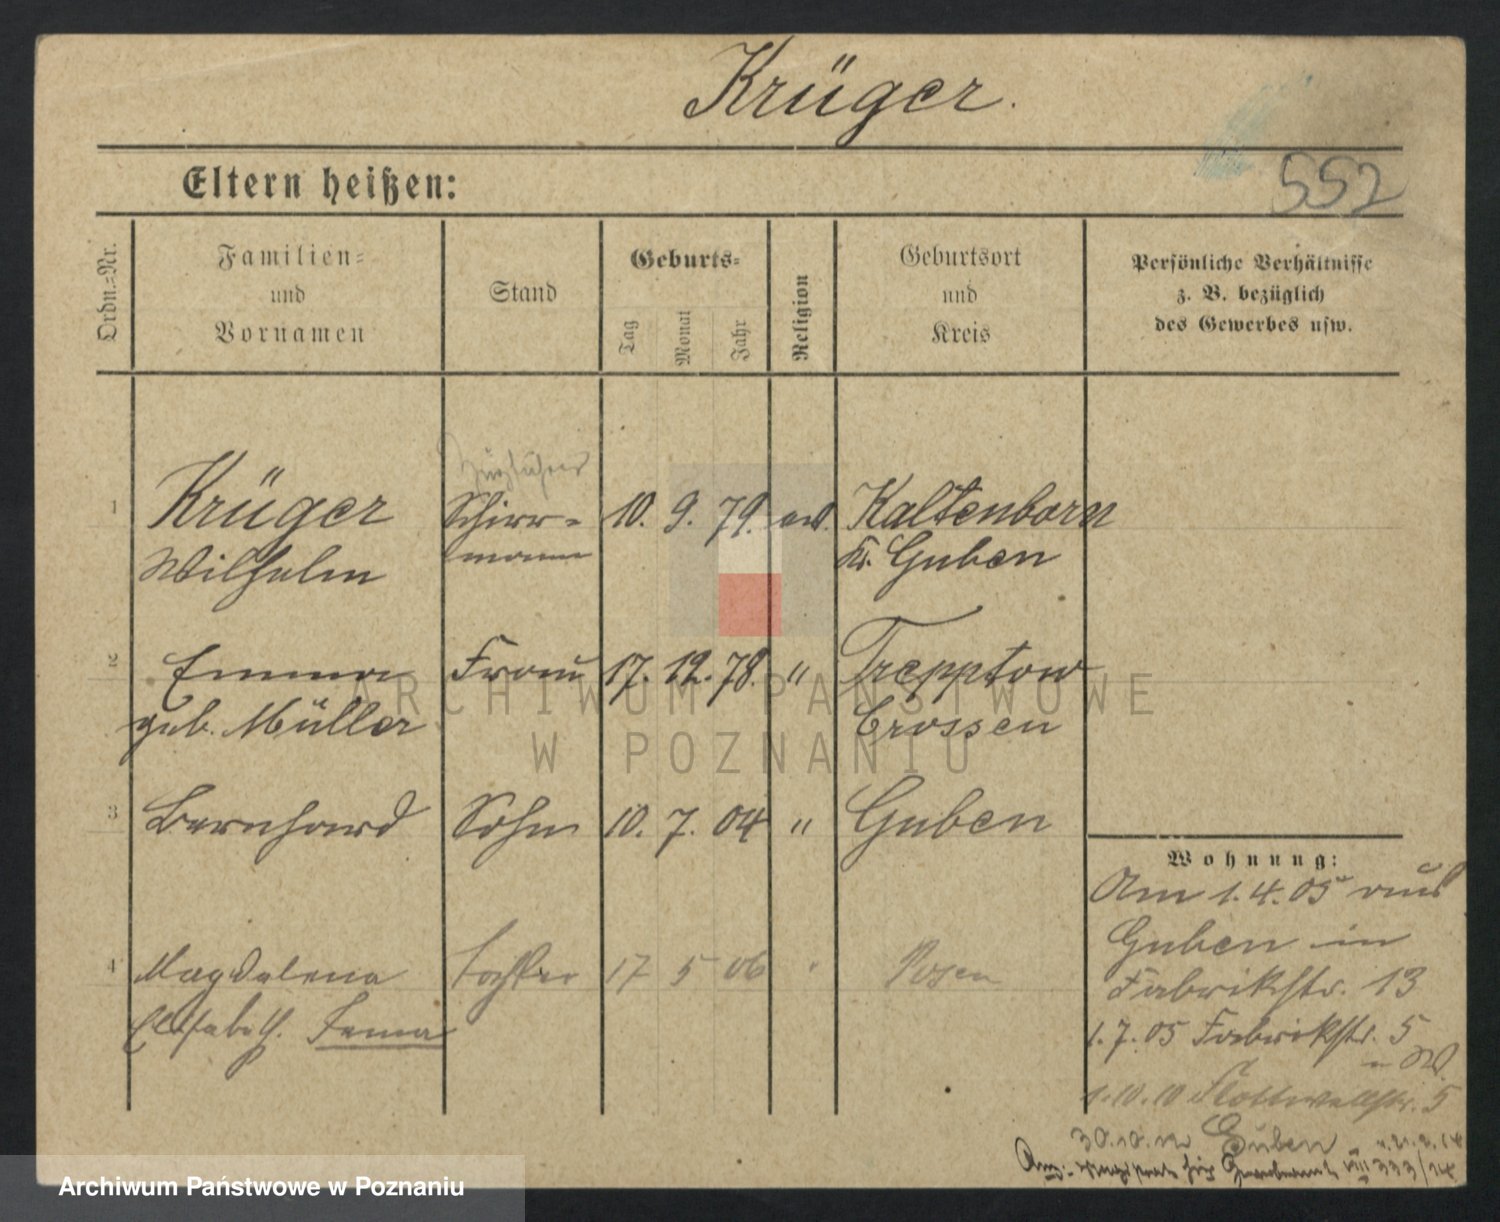 Krüger.
552
Eltern heißen:
Ordn.=Nr.
Familien=
und
Vornamen
Stand
Geburts=
Tag
Monat
Jahr
Religion
Geburtsort
und
Kreis
Persönliche Verhältnisse
z. B. bezüglich
des Gewerbes usw.
1 Krüger Schirr= 10. 9. 79. ev. Kaltenborn
Wilhelm mann Kr. Guben
2 Emma Frau 17. 12. 78. " Trepptow
geb. Müller Crossen
3 Bernhard Sohn 10. 7. 04 " Guben
4 Magdalena Tochter 17 5 06 " Posen
Elisabeth
Wohnung:
Am 1.4.05 aus
Guben in
Fabrikstr. 13
1.7.05 Fabrikstr. 5
1.10.10 Flottwellstr. 5
30.10. Guben
333/14
ARCHIWUM PAŃSTWOWE
W POZNANIU
Archiwum Państwowe w Poznaniu